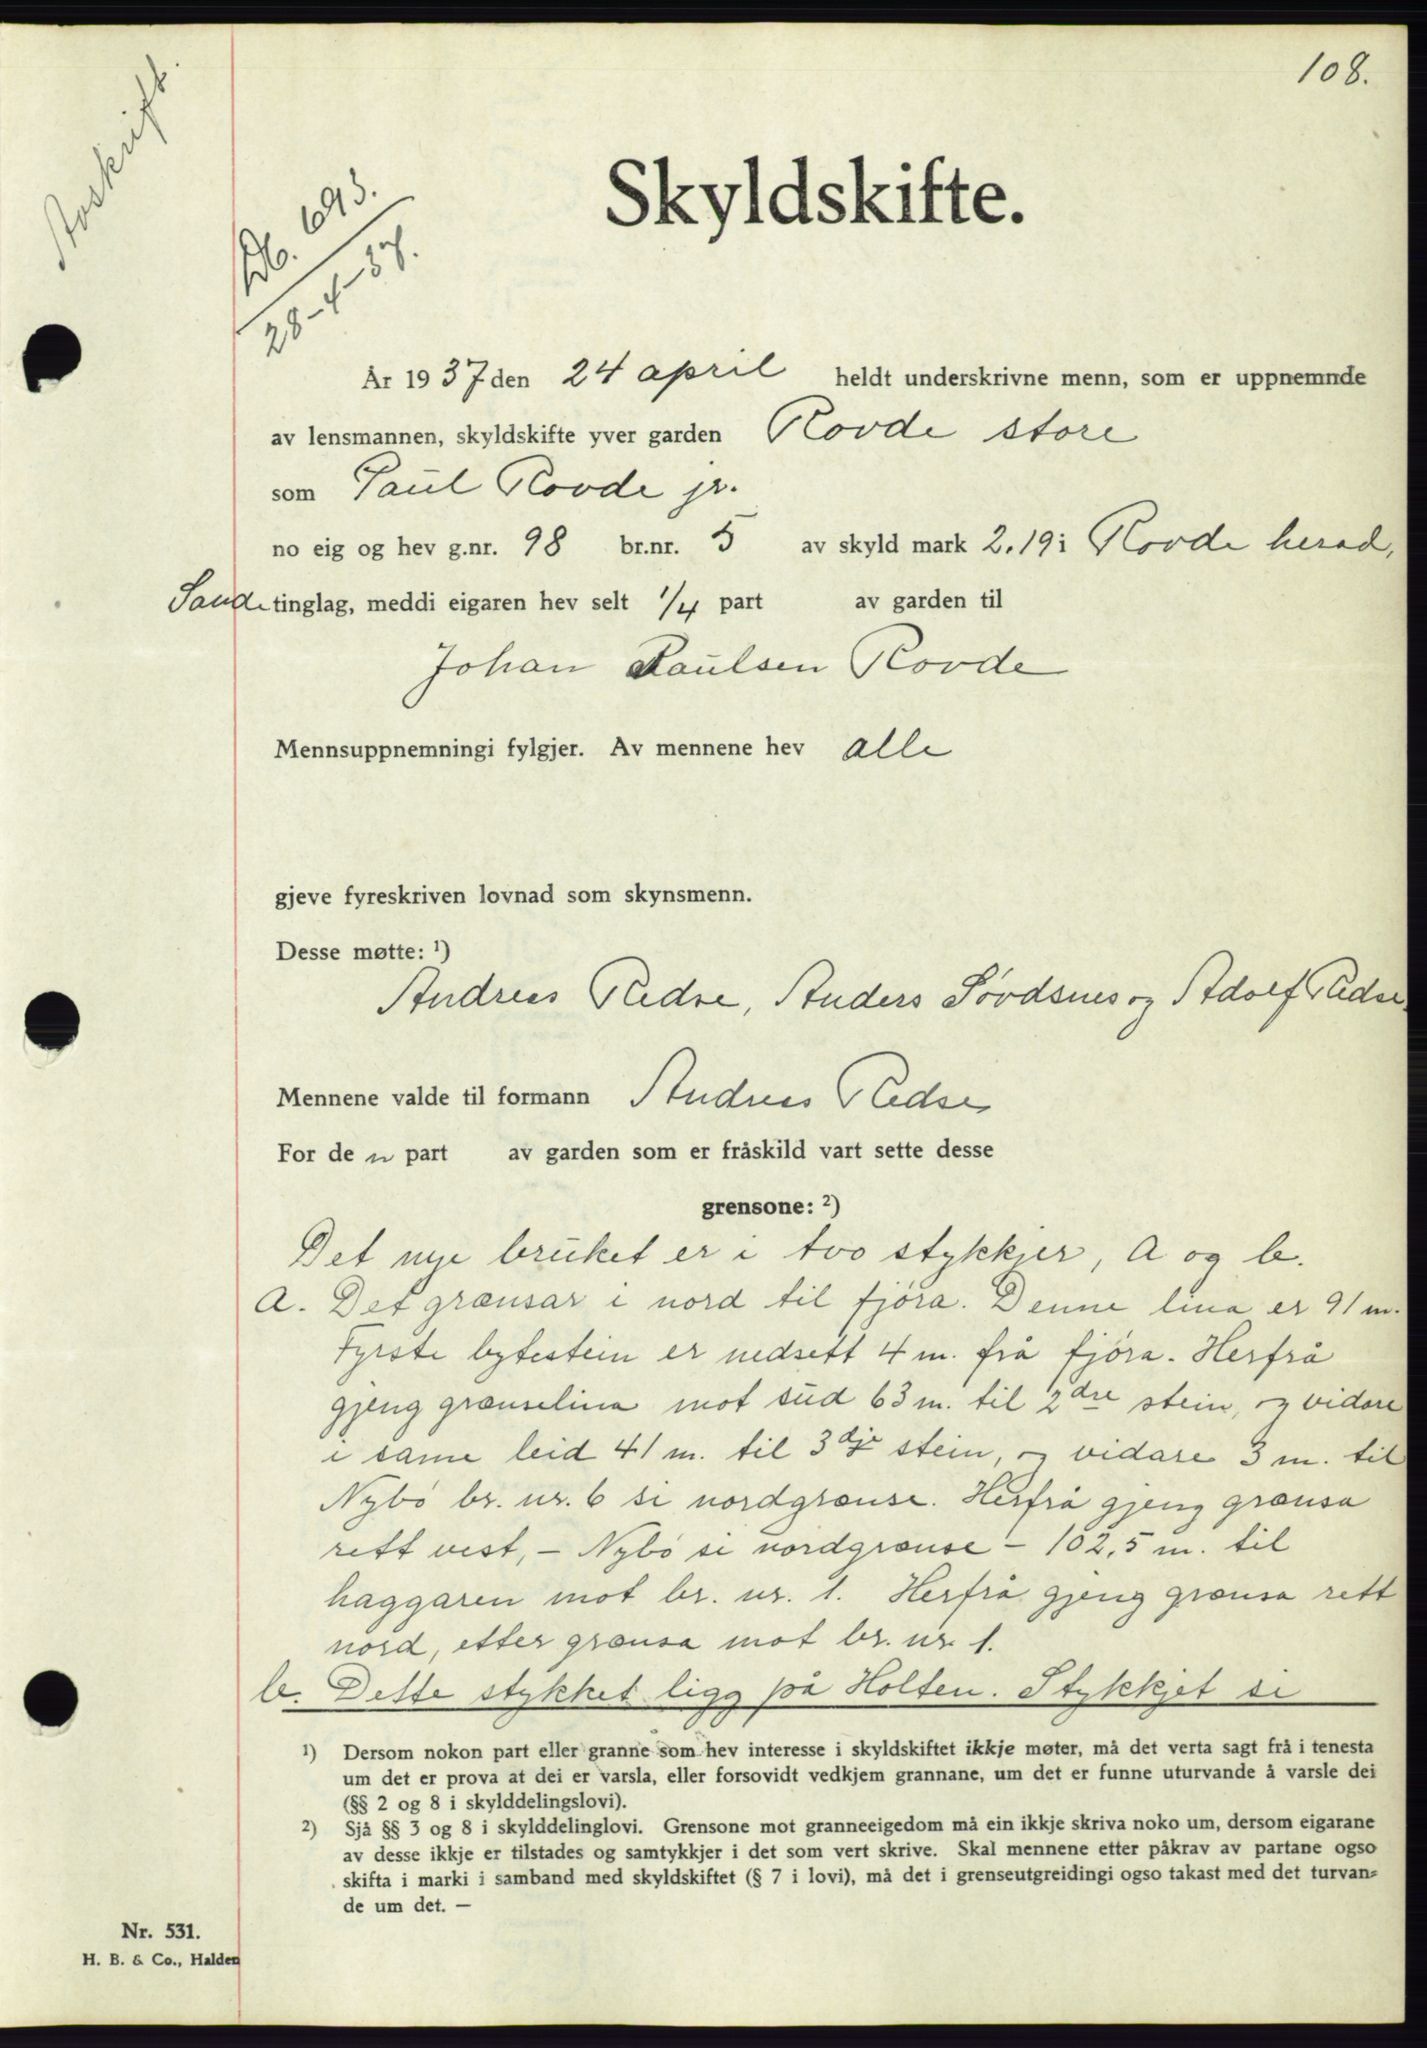 108.
Avskrift.
Skyldskifte.
Db. 693.
28-4-37.
År 1937 den 24 april heldt underskrivne menn, som er uppnemnde
av lensmannen, skyldskifte yver garden Rovde store
som Paul Rovde jr.
no eig og hev g.nr. 98 br.nr. 5 av skyld mark 2.19 i Rovde herad,
Sande tinglag, meddi eigaren hev selt 1/4 part av garden til
Johan Paulsen Rovde
Mennsuppnemningi fylgjer. Av mennene hev alle
gjeve fyreskriven lovnad som skynsmenn.
Desse møtte: ¹)
Andreas Redse, Anders Søvdsnes og Adolf Redse.
Mennene valde til formann Andreas Redse
For de n part av garden som er fråskild vart sette desse
grensone: ²)
Det nye bruket er i tvo stykkjer, A og b.
A. Det grænsar i nord til fjøra. Denne lina er 91 m.
Fyrste bytestein er nedsett 4 m. frå fjøra. Herfrå
gjeng grænselina mot sud 63 m. til 2dre stein, og vidare
i same leid 41 m. til 3dje stein, og vidare 3 m. til
Nybø br. nr. 6 si nordgrænse. Herfrå gjeng grænsa
rett vest, - Nybø si nordgrænse - 102,5 m. til
haggaren mot br. nr. 1. Herfrå gjeng grænsa rett
nord, etter grænsa mot br. nr. 1.
b. Dette stykket ligg på Holten. Stykkjet si
¹) Dersom nokon part eller granne som hev interesse i skyldskiftet ikkje møter, må det verta sagt frå i tenesta
um det er prova at dei er varsla, eller forsovidt vedkjem grannane, um det er funne uturvande å varsle dei
(§§ 2 og 8 i skylddelingslovi).
²) Sjå §§ 3 og 8 i skylddelinglovi. Grensone mot granneeigedom må ein ikkje skriva noko um, dersom eigarane
av desse ikkje er tilstades og samtykkjer i det som vert skrive. Skal mennene etter påkrav av partane ogso
skifta i marki i samband med skyldskiftet (§ 7 i lovi), må det i grenseutgreidingi ogso takast med det turvan-
de um det. —
Nr. 531.
H. B. & Co., Halden